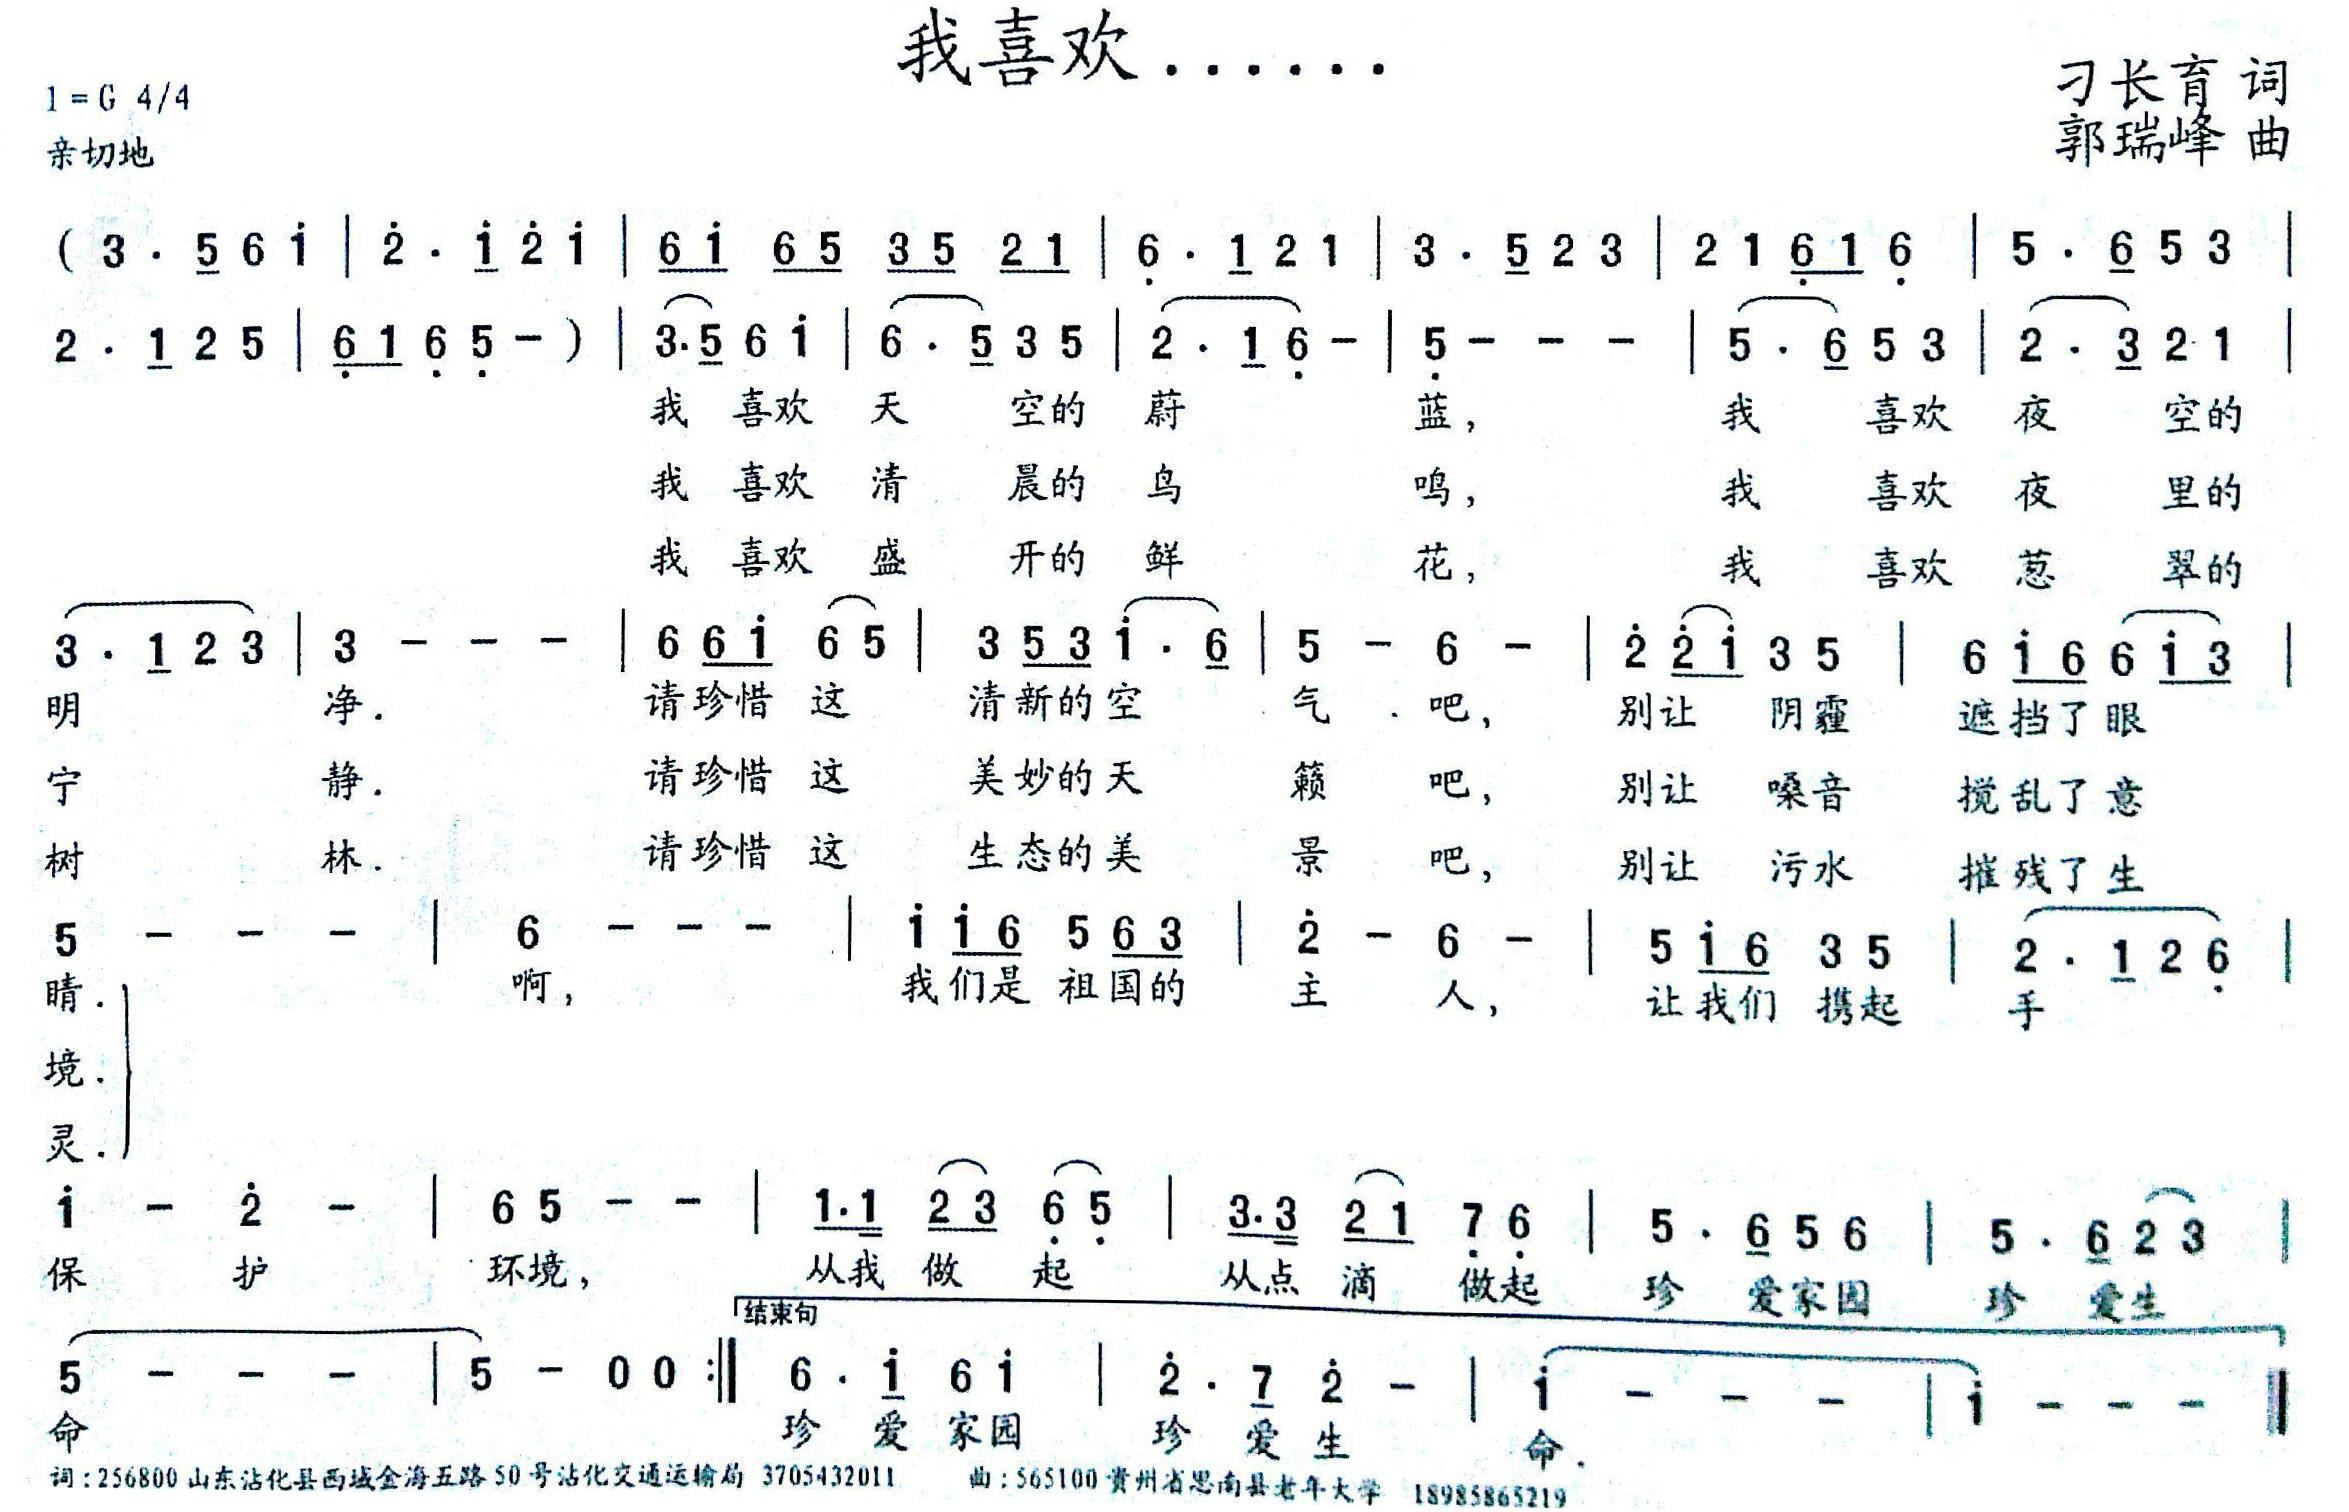 我喜欢......
1=G 4/4
刁长育 词
亲切地
郭瑞峰 曲
( 3 · 5 6 i | 2 · i 2 i | 6 i 6 5 3 5 2 1 | 6 · 1 2 1 | 3 · 5 2 3 | 2 1 6 1 6 | 5 · 6 5 3 |
2 · 1 2 5 | 6 1 6 5 - ) | 3 · 5 6 i | 6 · 5 3 5 | 2 · 1 6 - | 5 - - - | 5 · 6 5 3 | 2 · 3 2 1 |
我 喜欢 天 空的 蔚 蓝, 我 喜欢 夜 空的
我 喜欢 清 晨的 鸟 鸣, 我 喜欢 夜 里的
我 喜欢 盛 开的 鲜 花, 我 喜欢 葱 翠的
3 · 1 2 3 | 3 - - - | 6 6 i 6 5 | 3 5 3 i · 6 | 5 - 6 - | 2 2 i 3 5 | 6 i 6 6 i 3 |
明 净. 请珍惜 这 清新的空 气 吧, 别让 阴霾 遮挡了眼
宁 静. 请珍惜 这 美妙的天 籁 吧, 别让 嗓音 搅乱了意
树 林. 请珍惜 这 生态的美 景 吧, 别让 污水 摧残了生
5 - - - | 6 - - - | i i 6 5 6 3 | 2 - 6 - | 5 i 6 3 5 | 2 · 1 2 6 |
晴. 啊, 我们是 祖国的 主 人, 让我们 携起 手
境.
灵.
i - 2 - | 6 5 - - | 1 · 1 2 3 6 5 | 3 · 3 2 1 7 6 | 5 · 6 5 6 | 5 · 6 2 3 |
保 护 环境, 从我 做 起 从点 滴 做起 珍 爱家园 珍 爱生
结束句
5 - - - | 5 - 0 0 :‖ 6 · i 6 i | 2 · 7 2 - | i - - - | i - - - ‖
命 珍 爱 家园 珍 爱 生 命.
词:256800 山东沾化县西城金海五路50号沾化交通运输局 3705432011 曲:565100 贵州省思南县老年大学 18985865219